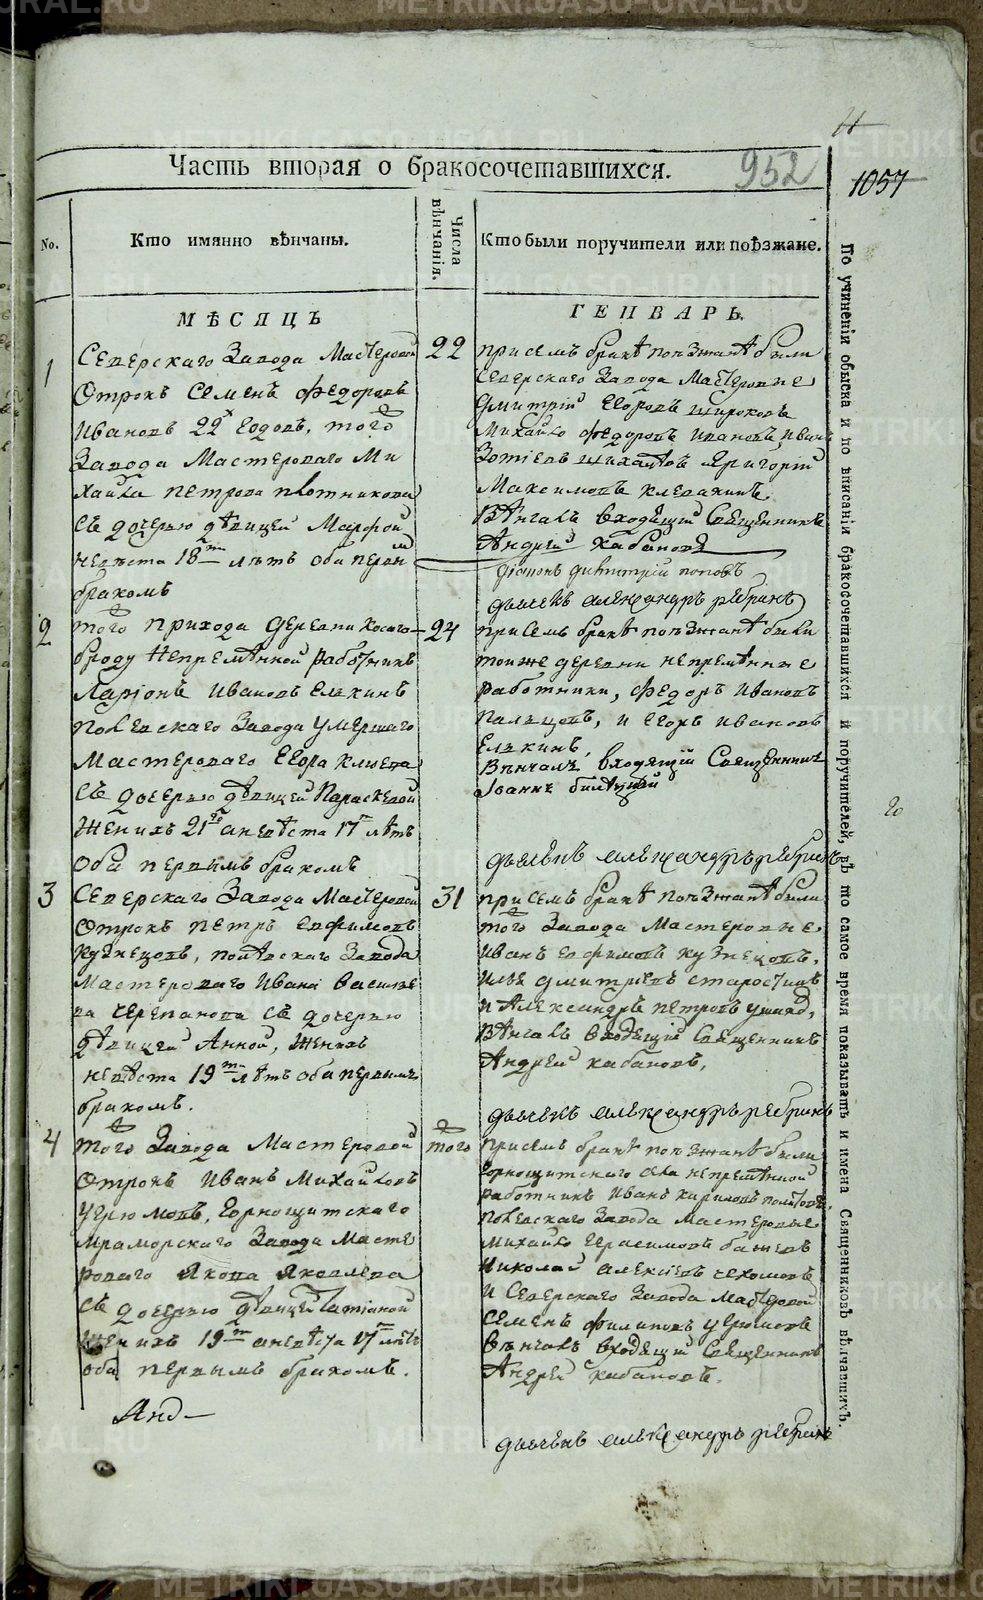 METRIKI.GASO-URAL.RU
11
Часть вторая о бракосочетавшихся.
952
1057
No.
Кто имянно вѣнчаны.
Числа вѣнчанія.
Кто были поручители или поѣзжане.
По учиненіи обыска и по вписаніи бракосочетавшихся и поручителей, въ то самое время показывать и имена Священниковъ вѣнчавшихъ.
МѢСЯЦЪ
ГЕНВАРЬ.
1
Северскаго Завода Мастеровой
Отрокъ Семенъ Федоровъ
Ивановъ 22х годовъ, того
Завода Мастероваго Ми
хайла Петрова Плотникова
съ дочерью дѣвицей Марфой
невѣста 18ти лѣтъ оба первы
бракомъ
22
при семъ бракѣ поѣзжанѣ были
Северскаго Завода Мастеровые
Дмитрій Егоровъ Широковъ
Михайло Федоровъ Ивановъ, Иванъ
Зотіевъ Шихалѣвъ Григорій
Максимовъ Клевакинъ
Вѣнчалъ входящій Священникъ
Андрей Кабановъ
Діаконъ Димитрій Поповъ
дьячекъ Александръ Ребринъ
2
того прихода деревни Косаго
броду Непремѣнной работникъ
Ларіонъ Ивановъ Елькинъ
Полевскаго Завода умершаго
Мастероваго Егора Клюева
съ дочерью дѣвицей Параскевой
Женихъ 21го а невѣста 17ти лѣтъ
Оба первымъ бракомъ
24
при семъ бракѣ поѣзжанѣ были
тоиже деревни непремѣнные
работники, Федоръ Ивановъ
Пальцовъ, и Егоръ Ивановъ
Елькинъ,
Вѣнчалъ входящій Священникъ
Іоаннъ
дьячекъ Александръ Ребринъ
20
3
Северскаго Завода Мастеровой
Отрокъ Петръ Ефимовъ
Кузнецовъ, Полевскаго Завода
Мастероваго Ивана Василье
ва Черепанова съ дочерью
дѣвицей Анной, Женихъ
невѣста 19ти лѣтъ оба первымъ
бракомъ.
31
при семъ бракѣ поѣзжанѣ были
того Завода Мастеровые
Иванъ Ефимовъ Кузнецовъ,
Илья Дмитріевъ Старостинъ
и Александръ Петровъ
Вѣнчалъ входящій Священникъ
Андрей Кабановъ,
дьячекъ Александръ Ребринъ
4
того Завода Мастеровой
Отрокъ Иванъ Михайловъ
Угрюмовъ, Горнощитскаго
Мраморскаго Завода Масте
роваго Якова Яковлева
съ дочерью дѣвицей Татіаной
Женихъ 19ти а невѣста 17ти лѣтъ
оба первымъ бракомъ.
того
при семъ бракѣ поѣзжанѣ были
Горнощитскаго села непремѣнной
работникъ Иванъ Кириловъ
Полевскаго Завода Мастеровые
Михайло Герасимовъ Бажевъ
Николай Алексіевъ Чехомовъ
и Северскаго Завода Мастеровой
Семенъ Филиповъ Угрюмовъ
вѣнчалъ входящій Священникъ
Андрей Кабановъ.
Анд
дьячекъ Александръ Ребринъ
METRIKI.GASO-URAL.RU